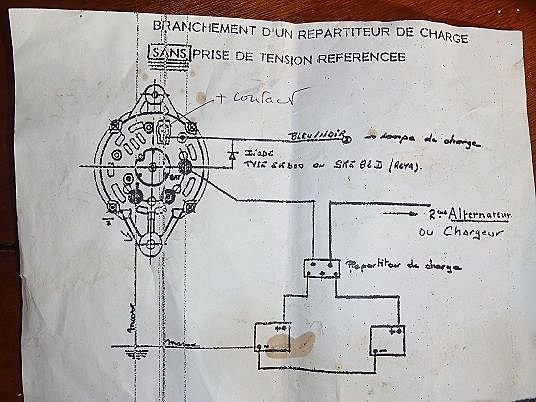 BRANCHEMENT D'UN REPARTITEUR DE CHARGE
SANS PRISE DE TENSION REFERENCEE
+ contact
BLEU/NOIR → Lampe de charge
DIODE
TYPE ou SKE (REYA).
BAT
2ème Alternateur
ou Chargeur
Repartiteur de charge
masse
masse
+
-
+
-